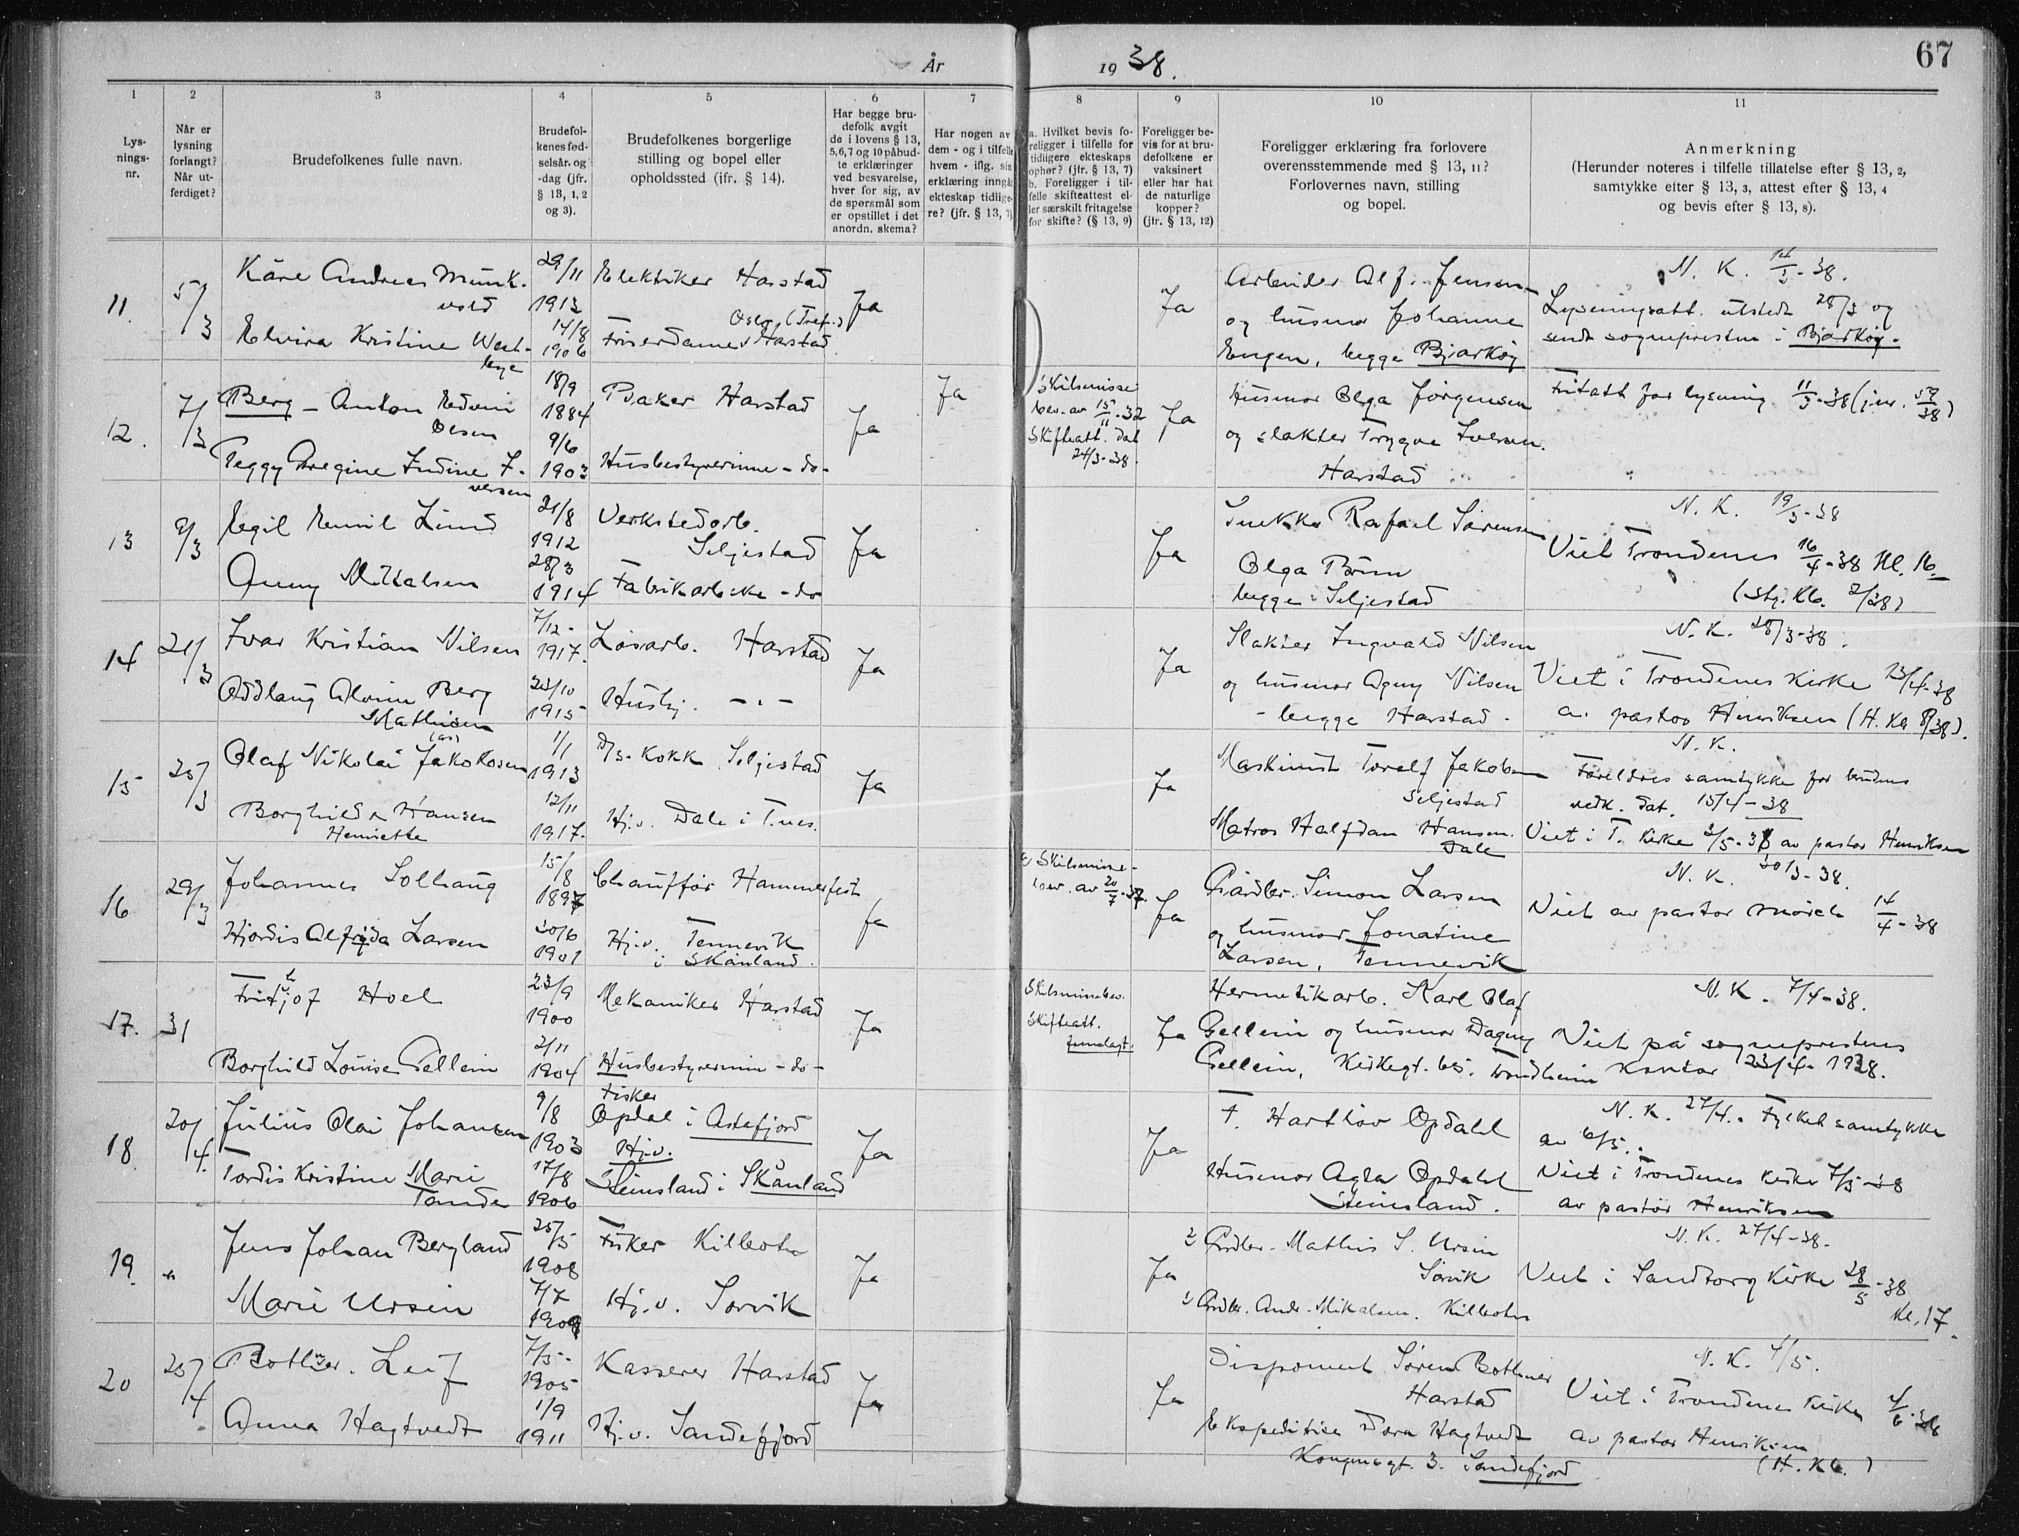 År 1938.
67
1
2
3
4
5
6
7
8
9
10
11
Lys-
nings-
nr.
Når er
lysning
forlangt?
Når ut-
ferdiget?
Brudefolkenes fulle navn.
Brudefol-
kenes fød-
selsår. og
-dag (jfr.
§ 13, 1, 2
og 3).
Brudefolkenes borgerlige
stilling og bopel eller
opholdssted (jfr. § 14).
Har begge bru-
defolk avgit
de i lovens § 13,
5,6,7 og 10 påbud-
te erklæringer
ved besvarelse,
hver for sig, av
de spørsmål som
er opstillet i det
anordn. skema?
Har nogen av
dem - og i tilfelle
hvem - iflg. sin
erklæring inngåt
ekteskap tidlige-
re? (jfr. § 13, 7)
a. Hvilket bevis fo-
religger i tilfelle for
tidligere ekteskaps
ophør? (jfr. § 13, 7)
b. Foreligger i til-
felle skifteattest el-
ler særskilt fritagelse
for skifte? (§ 13, 9)
Foreligger be-
vis for at bru-
defolkene er
vaksinert
eller har hat
de naturlige
kopper?
(jfr. § 13, 12)
Foreligger erklæring fra forlovere
overensstemmende med § 13, 11?
Forlovernes navn, stilling
og bopel.
Anmerkning
(Herunder noteres i tilfelle tillatelse efter § 13, 2,
samtykke efter § 13, 3, attest efter § 13, 4
og bevis efter § 13, 8).
11.
5/3
Kåre Andreas Munk-
vold
29/11
1913
Elektriker Harstad
Ja
Elvira Kristine West-
bye
14/8
1906
Oslo (Tref.)
Friserdame, Harstad
Ja
Arbeider Alf. Jensen
og husmor Johanne
Engen, begge Bjarkøy
N. K. 14/3-38.
Lysningsatt. utstedt 28/3 og
sendt sognepresten i Bjarkøy.
12.
7/3
Berg - Anton Edvin
Olsen
18/9
1884
Baker Harstad
Ja
Ja
Peggy Oregine Indine I-
versen
9/6
1903
Husbestyrerinne - do -
Skilsmisse
bev. av 15/11-32
Skifteatt. dat
24/3-38.
Ja
Husmor Olga Jørgensen
og slakter Trygve Iversen
Harstad
Fritatt for lysning 11/3-38 (j.nr. 57/38)
13
9/3
Egil Emil Lind
21/8
1912
Verkstedarb.
Seljestad
Ja
Anny Mikalsen
28/3
1914
Fabrikarbeke - do
Ja
Snekker Rafael Sørensen
Olga Brun
begge Seljestad
N. K. 19/3-38
Viet Trondenes 16/4-38 kl. 16
(Stg. Kb. 2/38)
14
21/3
Ivar Kristian Nilsen
7/12-
1917.
Løsarb. Harstad
Ja
Oddlaug Alvine Berg
Mathisen
23/10
1915
Husbj. - . -
Ja
Slakter Ingvald Nilsen
og husmor Agny Nilsen
- begge Harstad -
N. K. 28/3-38.
Viet i Trondenes Kirke 23/4-38
av pastor Henriksen (H. Kb 8/38).
15
25/3
Olaf Nikolai Jakobsen
1/1
1913
D/s. Kokk Seljestad
Ja
Borghild Hansen
Henriette
12/11
1917.
Hj.v. Dale i T.nes.
Ja
Maskinist Toralf Jakobsen
Seljestad
Matros Halfdan Hansen.
Dale
N. K.
Foreldres samtykke for brudens
vedk. dat. 15/4-38
Viet i T. Kirke 2/5-38 av pastor Henriksen
16
29/3
Johannes Solhaug
15/8
1897
Chauffør Hammerfest
Ja
Hjørdis Alfrida Larsen
20/6
1901
Hj.v. Tennevik
i Skånland.
Skilsmisse-
bev. av 20/7-37.
Ja
Gårdbr. Simon Larsen
og husmor Jonatine
Larsen, Tennevik
N. K. 30/3-38.
Viet av pastor Mörch 14/4-38
17.
31
Fritjof Hoel
23/9
1900
Mekaniker Harstad
Ja
Borghild Louise Gellein
2/11
1904
Husbestyrerinne - do -
Skilsmissebev.
Skifteatt.
fremlagt.
Ja
Hermetikarb. Karl Olaf
Gellein og husmor Dagny
Gellein, Kirkegt. 65. Trondheim
N. K. 7/4-38.
Viet på sogneprestens
kontor 23/4-1938.
18.
20/4.
Julius Olai Johansen
9/8
1903
Fisker
Opdal i Astafjord
Ja
Tordis Kristine Marie
Tande
17/8
1906
Hj.v.
Steinsland i Skånland
Ja
F. Harthov Opdahl
Husmor Agta Opdahl
Steinsland.
N. K. 27/4. Fylket samtykke
av 6/5.
Viet i Trondenes Kirke 7/5-38
av pastor Henriksen
19.
"
Jens Johan Bergland
25/5
1908
Fisker Kilbotn
Ja
Marie Ursin
7/7
1909
Hj.v. Sørvik
Ja
Gårdbr. Mathis S. Ursin
Sørvik
Gårdbr. Andr. Mikalsen. Kilbotn
N. K. 27/4-38.
Viet i Sandtorg Kirke 28/5-38
kl. 17.
20
25/4
Bothner. Leif
7/5-
1905
Kasserer Harstad
Ja
Anna Hagtvedt
1/9
1911
Hj.v. Sandefjord
Ja
Disponent Søren Bothner
Harstad
Ekspeditrise Dora Hagtvedt
Kongensgt. 3. Sandefjord
N. K. 4/5.
Viet i Trondenes Kirke 4/6-38
av pastor Henriksen
(H. Kb. )